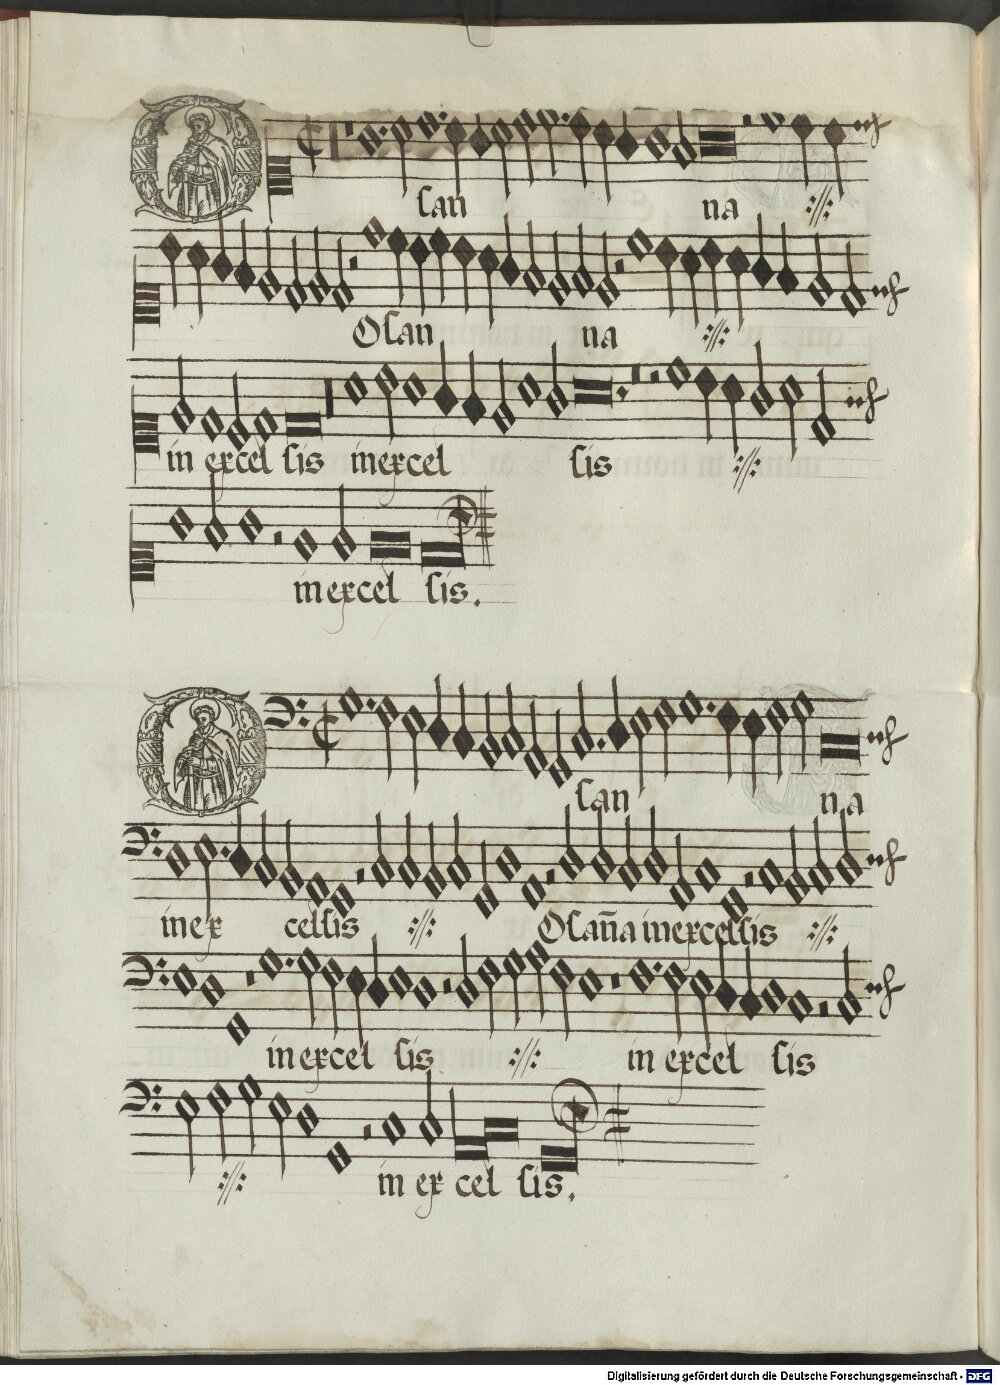 Osan na
Osan na
in excel sis in excel sis
in excel sis.
Osan na
in ex celsis Osaña in excelsis
in excel sis in excel sis
in ex cel sis.
Digitalisierung gefördert durch die Deutsche Forschungsgemeinschaft - DFG